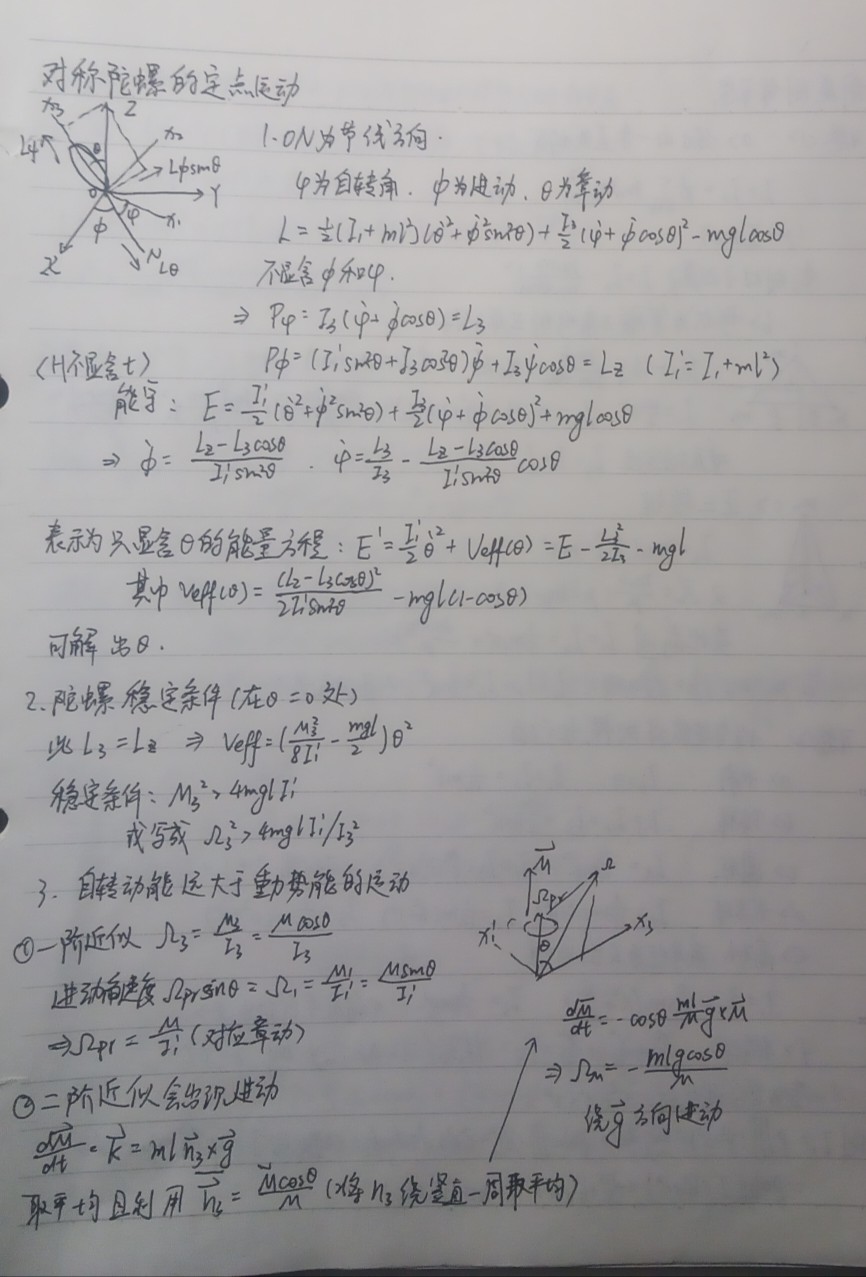 对称陀螺的定点运动
x₃ Z x₂ Lψ θ Lφsinθ O Y φ ψ x₁ X N Lθ
1. ON为节线方向.
ψ为自转角. φ为进动. θ为章动
L = ½(I₁+ml²)(θ̇²+φ̇²sin²θ) + I₃/2 (ψ̇+φ̇cosθ)² - mglcosθ
不显含φ和ψ.
⇒ Pψ = I₃(ψ̇+φ̇cosθ) = L₃
(H不显含t) Pφ = (I₁'sin²θ+I₃cos²θ)φ̇ + I₃ψ̇cosθ = Lz (I₁' = I₁+ml²)
能守: E = I₁'/2 (θ̇²+φ̇²sin²θ) + I₃/2 (ψ̇+φ̇cosθ)² + mglcosθ
⇒ φ̇ = (Lz-L₃cosθ)/(I₁'sin²θ) . ψ̇ = L₃/I₃ - (Lz-L₃cosθ)/(I₁'sin²θ) cosθ
表示为只显含θ的能量方程: E' = I₁'/2 θ̇² + Veff(θ) = E - L₃²/2I₃ - mgl
其中 Veff(θ) = (Lz-L₃cosθ)²/(2I₁'sin²θ) - mgl(1-cosθ)
可解出θ.
2. 陀螺稳定条件(在θ=0处)
此 L₃=Lz ⇒ Veff = (M₃²/8I₁' - mgl/2)θ²
稳定条件: M₃² > 4mglI₁'
或写成 Ω₃² > 4mglI₁'/I₃²
3. 自转动能远大于重力势能的运动
①一阶近似 Ω₃ = M₃/I₃ = Mcosθ/I₃
进动角速度 Ωpr sinθ = Ω₁ = M₁/I₁' = Msinθ/I₁'
⇒ Ωpr = M/I₁' (对应章动)
M⃗ Ω Ωpr x₁' θ x₃
②二阶近似会出现进动
dM⃗/dt = K⃗ = ml n⃗₃×g⃗
取平均且利用 n⃗₃ = M⃗cosθ/M (将n₃绕竖直一周取平均)
dM⃗/dt = -cosθ ml/M g⃗×M⃗
⇒ Ωm = - mlgcosθ/M
绕g⃗方向进动